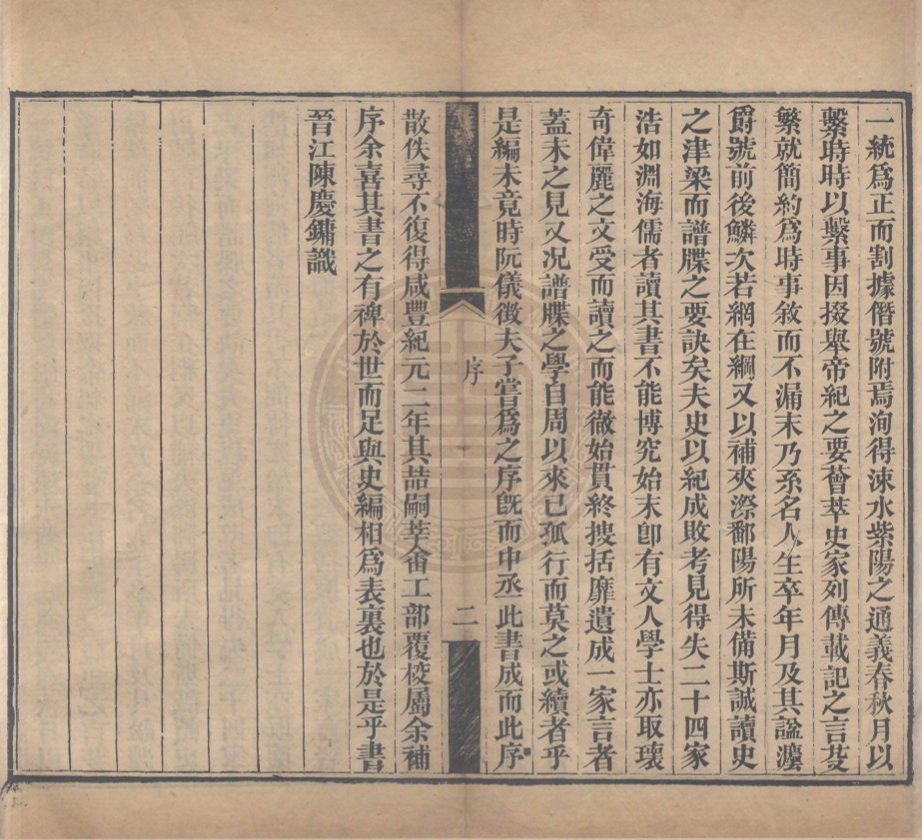 一統爲正而割據僭號附焉洵得涑水紫陽之通義春秋月以
繫時時以繫事因掇舉帝紀之要薈萃史家列傳載記之言芟
繁就簡約爲時事敘而不漏末乃系名人生卒年月及其諡灋
爵號前後鱗次若網在綱又以補夾漈鄱陽所未備斯誠讀史
之津梁而譜牒之要訣矣夫史以紀成敗考見得失二十四家
浩如淵海儒者讀其書不能博究始末卽有文人學士亦取瓌
奇偉麗之文受而讀之而能徹始貫終捜括靡遺成一家言者
蓋未之見又況譜牒之學自周以來已孤行而莫之或續者乎
是編未竟時阮儀徵夫子嘗爲之序旣而申丞此書成而此序
序
二
散佚尋不復得咸豐紀元二年其喆嗣莘畬工部覆校屬余補
序余喜其書之有裨於世而足與史編相爲表裏也於是乎書
晉江陳慶鏞識